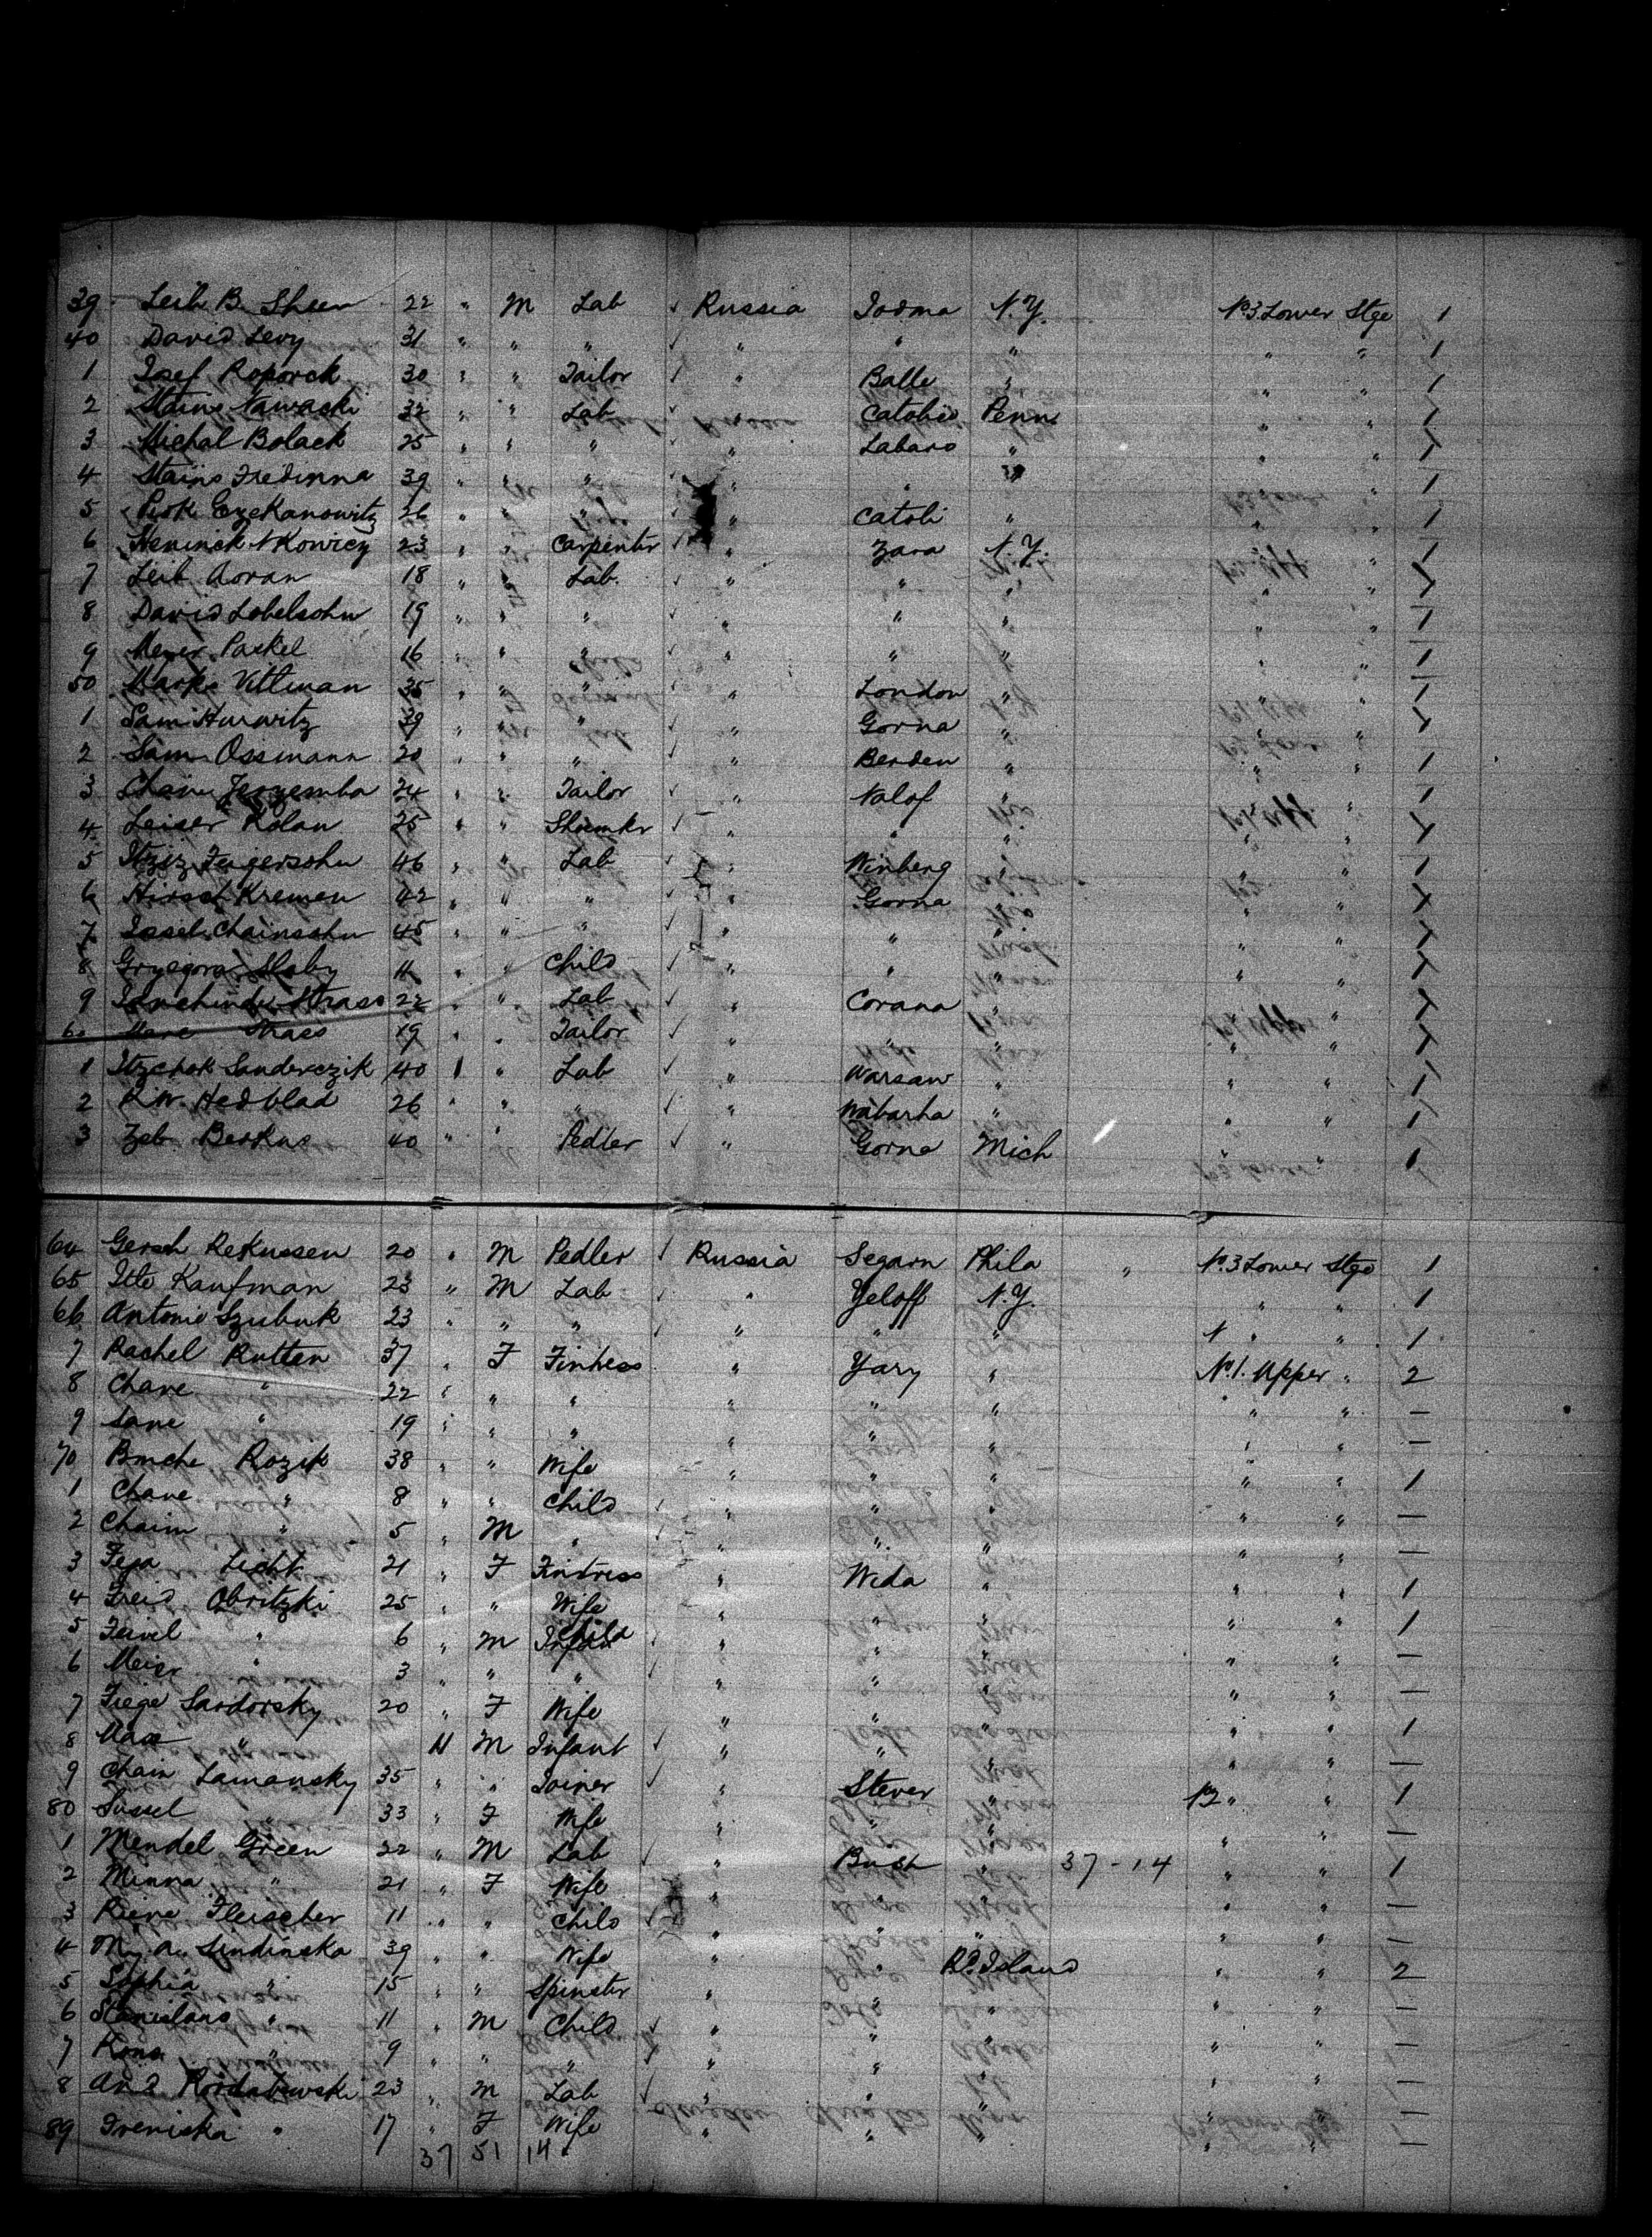 39 Leib B. Sheer 22 " M Lab ✓ Russia Todma N.Y. No 3 Lower Stge 1
40 David Levy 31 " " " ✓ " " " " " 1
1 Josef Roporck 30 " " Tailor ✓ " Balle " " " 1
2 Nawacki 32 " " Lab ✓ " Catobis Penn " " 1
3 Michal Bolack 25 " " " " Labaro " " " 1
4 Stains Fredinna 39 " " " ✓ " " " " " 1
5 Ezekanowitz 26 " " " " Catobi " " " 1
6 23 " " Carpenter ✓ " Zara N.Y. " " 1
7 Leib Aoran 18 " " Lab ✓ " " " " " 1
8 David Lobelsohn 19 " " " ✓ " " " " " 1
9 Meyer Packel 16 " " " ✓ " " " " " 1
50 Marks Vittman 35 " " " ✓ " London " " " 1
1 Sam Hurwitz 39 " " " ✓ " Gorna " " " 1
2 Sam Ossmann 20 " " " ✓ " Berden " " " 1
3 Jerzemba 24 " " Tailor ✓ " Nalof " " " 1
4 Leiser Rolan 25 " " Shoemkr ✓ " " " " " 1
5 Itzig Feigersohn 46 " " Lab " Winberg " " " 1
6 Hirsch Kremen 42 " " " " Gorna " " " 1
7 Jossel Chainsohn 45 " " " " " " " " 1
8 Grzegora Slaby 11 " " Child " " " " " 1
9 Strass 22 " " Lab ✓ " Corana " " " 1
60 Strass 19 " " Tailor ✓ " " " " " 1
1 Itzchok Sanderczik 40 1 " Lab ✓ " Warsaw " " " 1
2 R.W. Hedblad 26 " " " ✓ " Wabasha " " " 1
3 Zeb Berkus 40 " " Pedler ✓ " Gorna Mich " " 1
64 Gersch Rekussen 20 " M Pedler ✓ Russia Segarn Phila " No 3 Lower Stge 1
65 Itte Kaufman 23 " M Lab ✓ " Yeloff N.Y. " " 1
66 Antonie Szubuk 23 " " " ✓ " " " " " 1
7 Rachel Rutten 37 " F " Yary " No 1. Upper " 2
8 Chane " 22 " " " " " " " " —
9 Sane " 19 " " " " " " " " —
70 Bruche Rozik 38 " " Wife " " " " " 1
1 Chane " 8 " " Child ✓ " " " " " —
2 Chaim " 5 " M " ✓ " " " " " —
3 Fega Licht 21 " F " Wida " " " 1
4 Freid Obritzki 25 " " Wife " " " " " 1
5 Feivel " 6 " M Child ✓ " " " " " —
6 Meier " 3 " " " ✓ " " " " " —
7 Fiege Sardorsky 20 " F Wife " " " " " 1
8 Max " 11 M Infant ✓ " " " " " —
9 Chain Lamansky 35 " " Joiner ✓ " Stever " No 2 " " 1
80 Sussel " 33 " F Wife " " " " " —
1 Mendel Green 22 " M Lab ✓ " Bush " 37-14 " " 1
2 Minna " 21 " F Wife " " " " " —
3 Rieve Fleischer 11 " " Child ✓ " " " " " —
4 M. A. Lindinska 39 " " Wife " " Rd. Island " " 2
5 Sophia " 15 " " Spinster " " " " " —
6 Stanislaus " 11 " M Child ✓ " " " " " —
7 Rona " 9 " " " ✓ " " " " " —
8 And Rordabowski 23 " M Lab ✓ " " " " " —
89 Freniska " 17 " F Wife " " " " " —
37 51 14